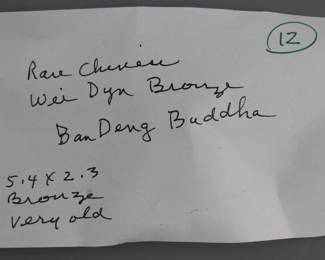 12
Rare Chinese
Wei Dyn Bronze
BanDeng Buddha
5.4 x 2.3
Bronze
Very old